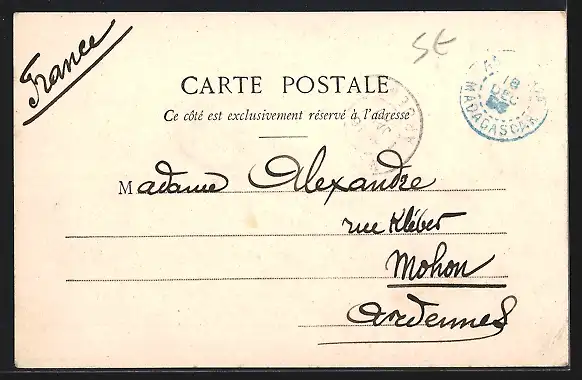 France
St
CARTE POSTALE
Ce côté est exclusivement réservé à l'adresse
18
DEC
MADAGASCAR
Madame Alexandre
rue Kléber
Mohon
Ardennes